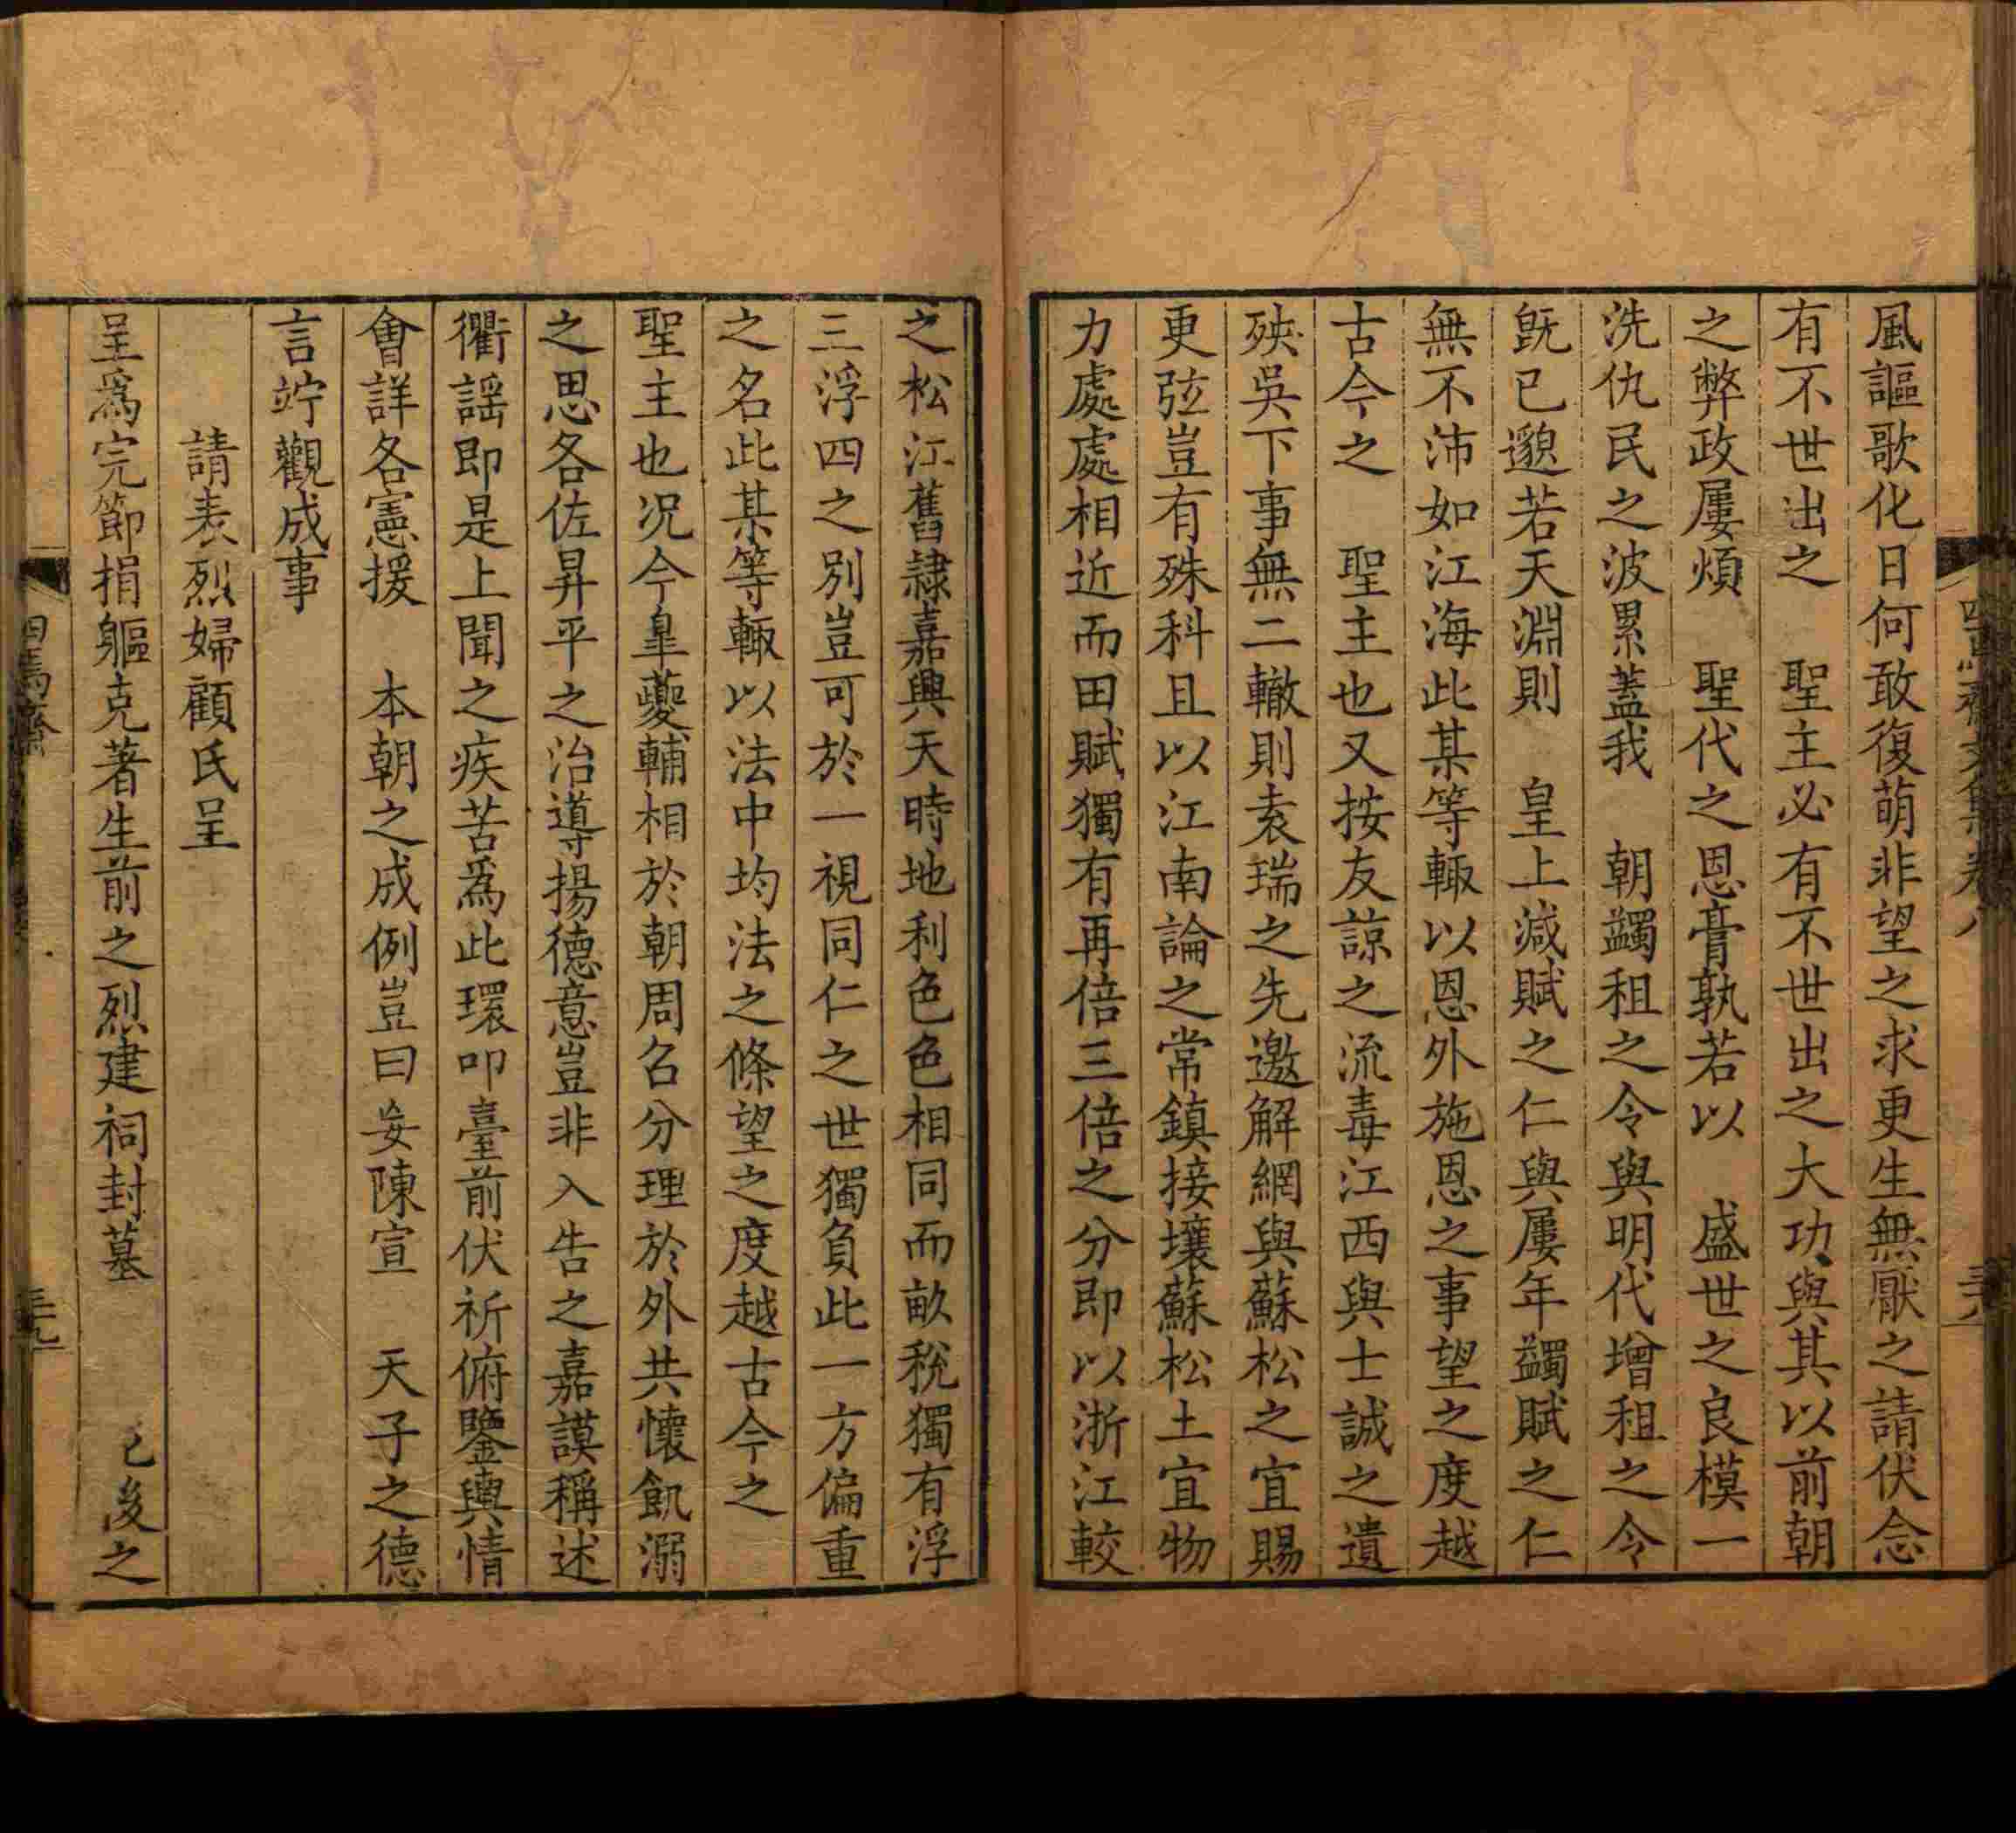 風謳歌化日何敢復萌非望之求更生無厭之請伏念
有不世出之　聖主必有不世出之大功與其以前朝
之弊政屢煩　聖代之恩膏孰若以　盛世之良模一
洗仇民之波累蓋我　朝蠲租之令與明代增租之令
旣已邈若天淵則　皇上減賦之仁與屢年蠲賦之仁
無不沛如江海此某等輙以恩外施恩之事望之度越
古今之　聖主也又按友諒之流毒江西與士誠之遺
殃吳下事無二轍則袁瑞之先邀解網與蘇松之宜賜
更弦豈有殊科且以江南論之常鎮接壤蘇松土宜物
力處處相近而田賦獨有再倍三倍之分即以浙江較
之松江舊隷嘉興天時地利色色相同而畝稅獨有浮
三浮四之別豈可於一視同仁之世獨負此一方偏重
之名此某等輙以法中均法之條望之度越古今之
聖主也况今臯夔輔相於朝周召分理於外共懷飢溺
之思各佐昇平之治導揚德意豈非入告之嘉謨稱述
衢謡即是上聞之疾苦爲此環叩臺前伏祈俯鑒輿情
會詳各憲援　本朝之成例豈曰妄陳宣　天子之德
言竚觀成事
請表烈婦顧氏呈
呈爲完節捐軀克著生前之烈建祠封墓　之